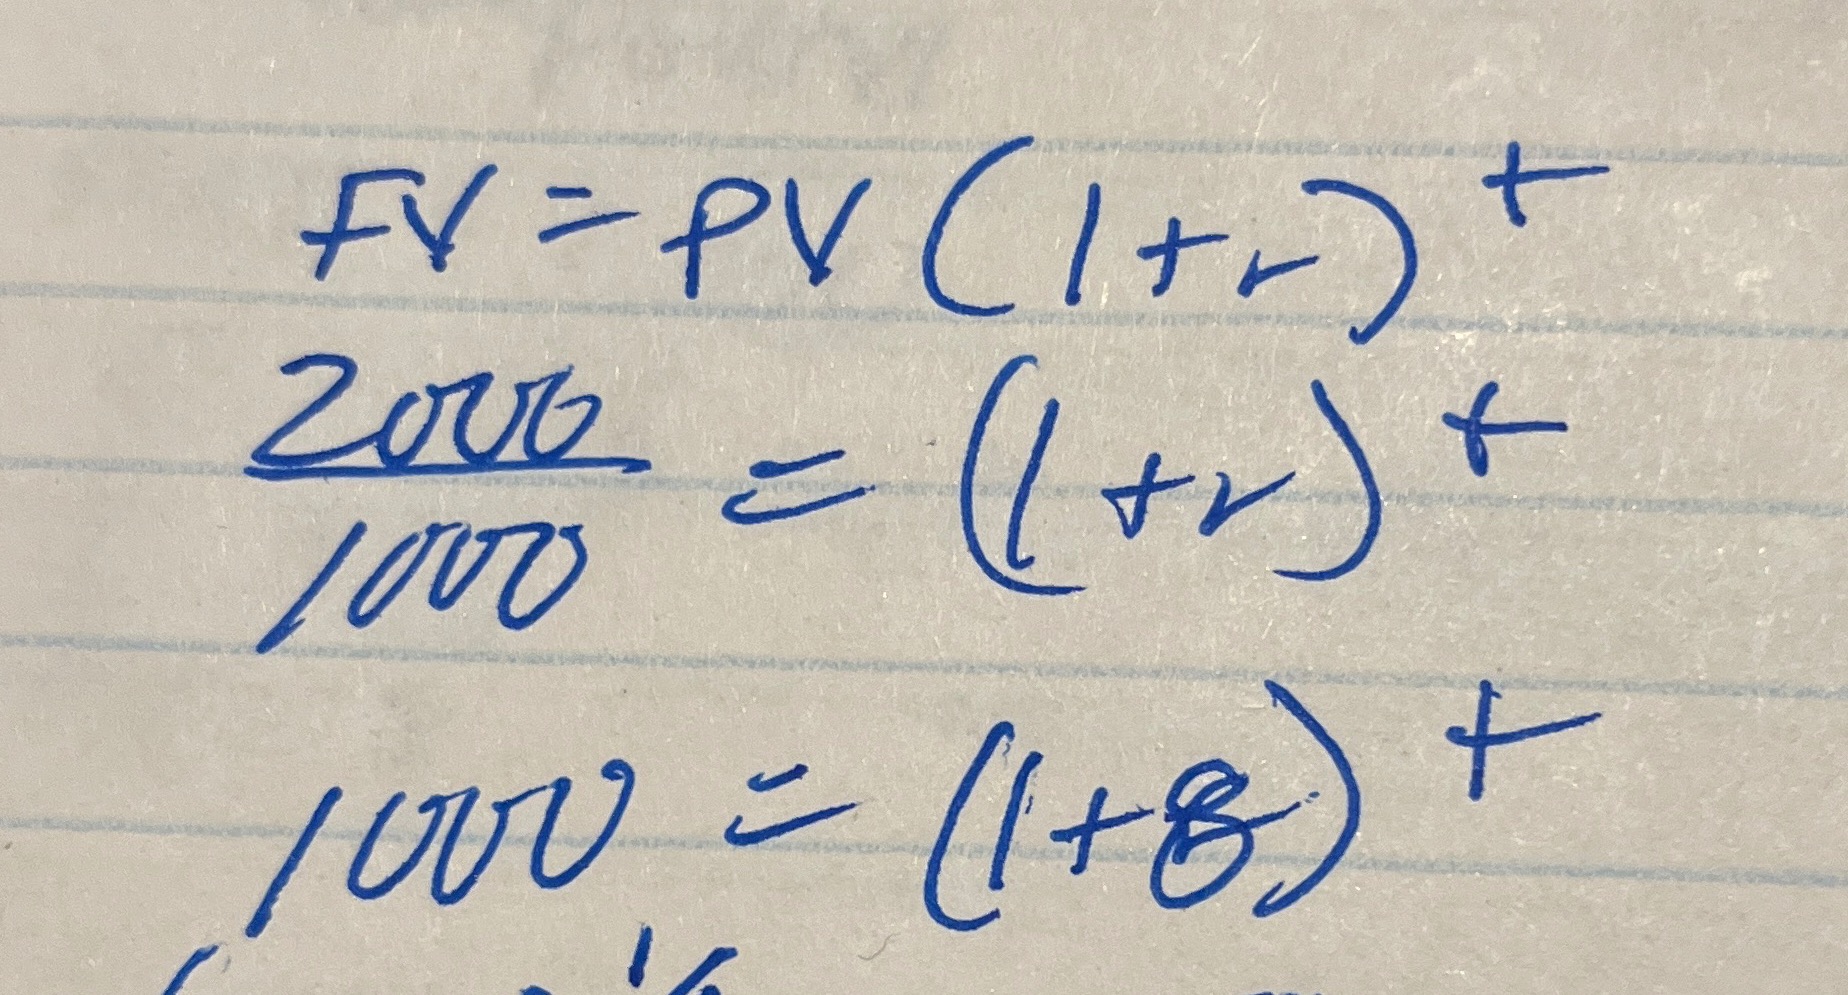 FV = PV (1+r)^t
2000/1000 = (1+r)^t
1000 = (1+8)^t